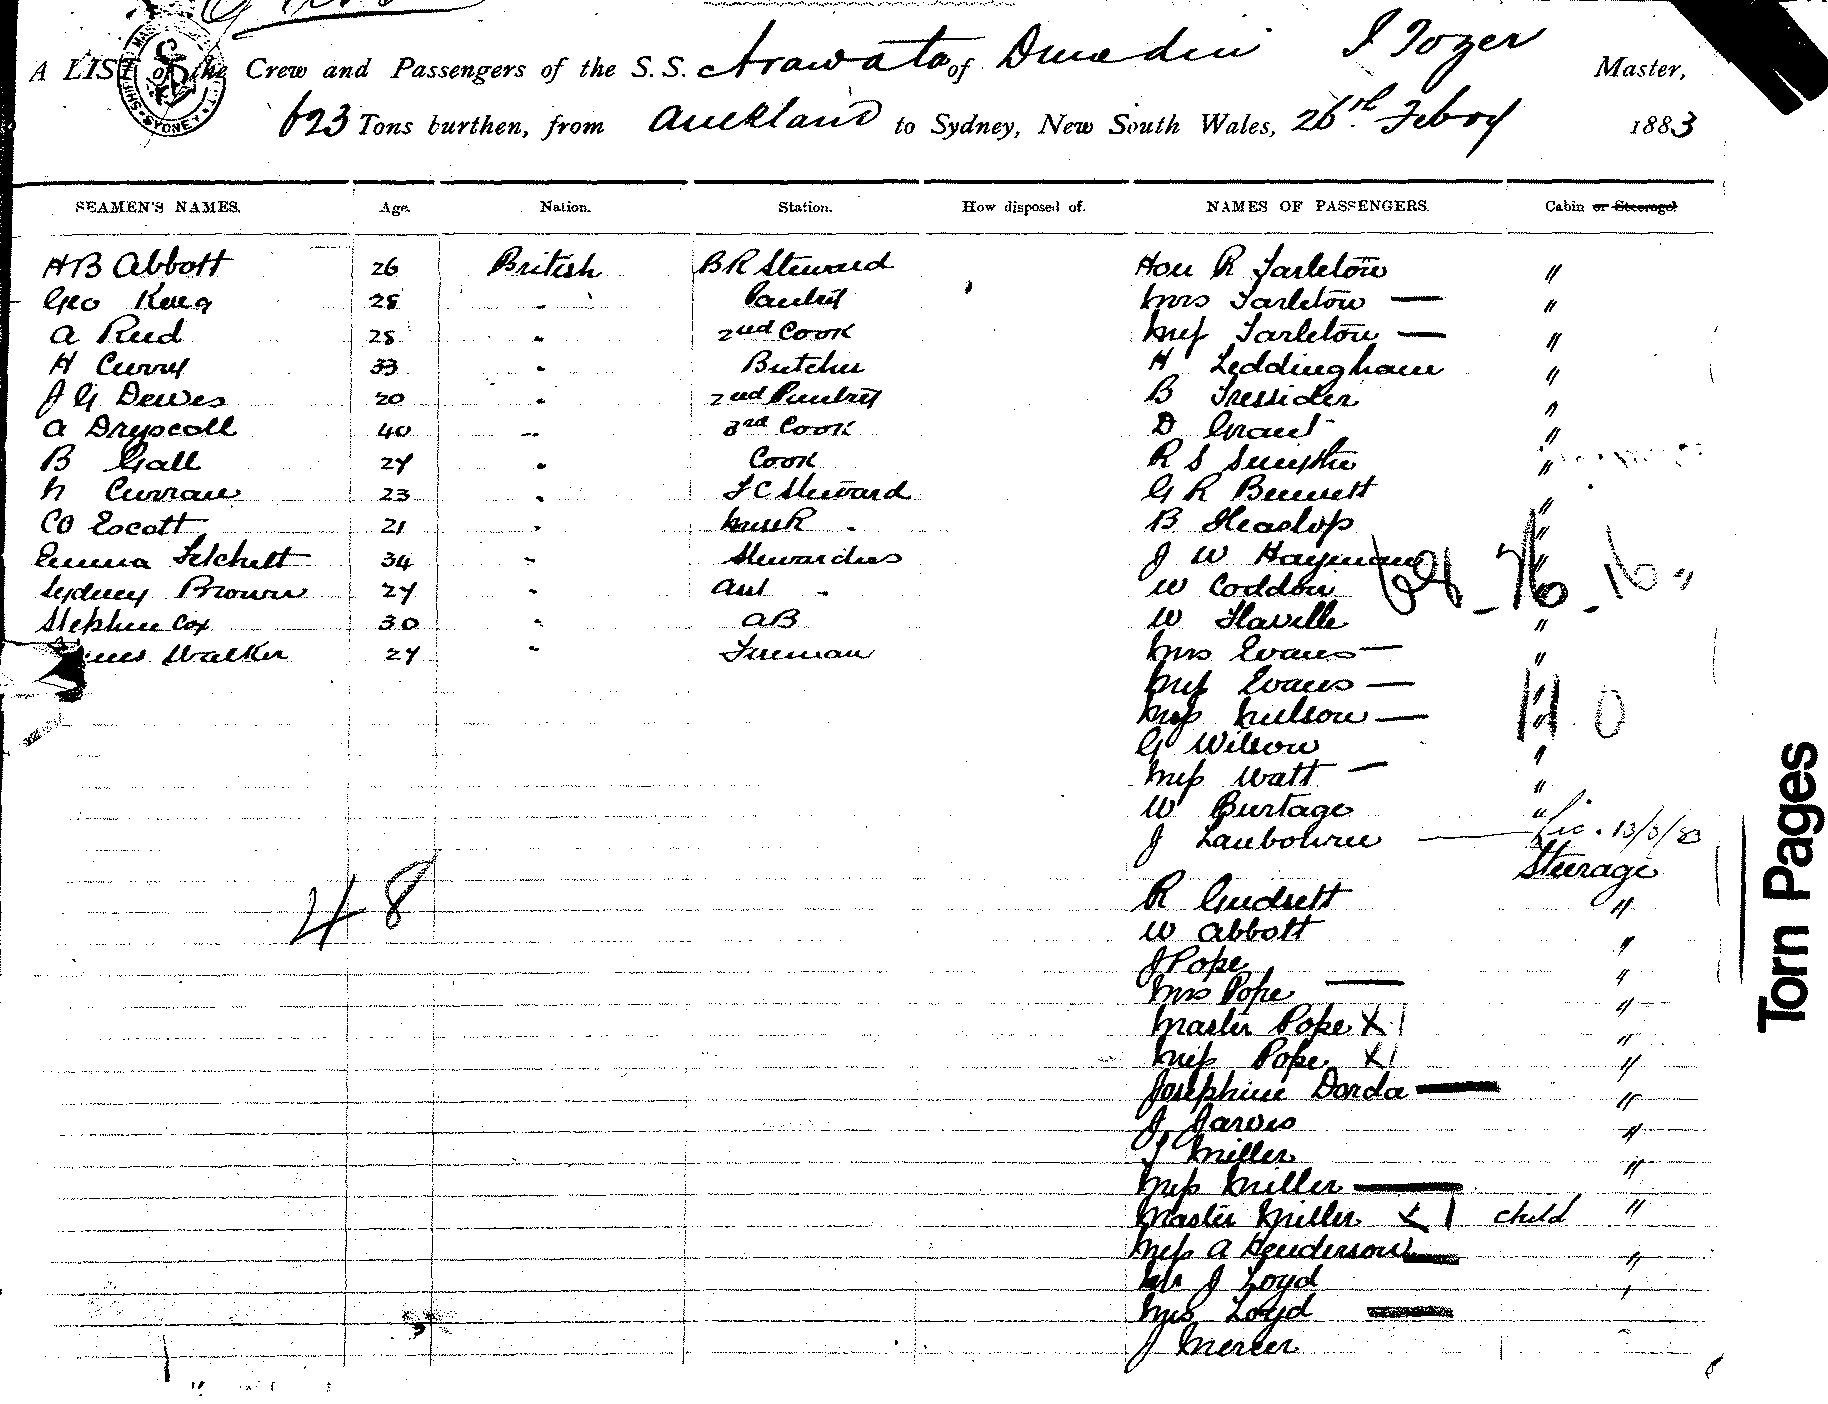 A LIST of the Crew and Passengers of the S.S. Arawata of Dunedin J Tozer Master,
623 Tons burthen, from Auckland to Sydney, New South Wales, 26th Febry 1883
SEAMEN'S NAMES. Age. Nation. Station. How disposed of. NAMES OF PASSENGERS. Cabin or Steerage
H B Abbott 26 British B R Steward Hon R Tarleton "
Geo King 28 " Pantry Mrs Tarleton — "
A Reid 28 " 2nd Cook Miss Tarleton — "
H Curry 33 " Butcher H Leddingham "
J G Dewes 20 " 2nd Pantry B Tressider "
A Dryscoll 40 " 3rd Cook D Grant "
B Gall 24 " Cook R S Smythe "
H Curran 23 " F C Steward G R Bennett "
C O Escott 21 " B Heaslop "
Emma Fetchett 34 " Stewardess J W Hayman "
Sydney Brown 24 " W Coddon "
Stephen Cox 30 " AB W Flaville "
Walker 24 " Fireman Mrs Evans — "
Miss Evans — "
Miss Neilson — "
G Wilson "
Miss Watt — "
W Burtage "
J Lanbourne
Steerage
R "
W Abbott "
J Pope "
Mrs Pope — "
Master Pope X 1 "
Miss Pope X 1 "
Josephine Dorda — "
J Jarvis "
J Miller "
Miss Miller — "
Master Miller X 1 child "
Miss A Henderson — "
Mr J Loyd "
Mrs Loyd —
J Mercer
48
Torn Pages